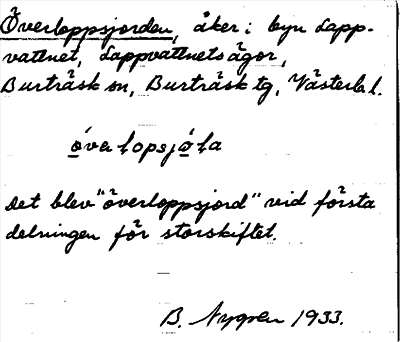 Överloppsjorden, åker i byn Lapp-
vattnet, Lappvattnets ägor,
Burträsk sn, Burträsk tg, Västerb. l.
överlopsjola
Det blev "överloppsjord" vid första
delningen för storskiftet.
B. Nygren 1933.